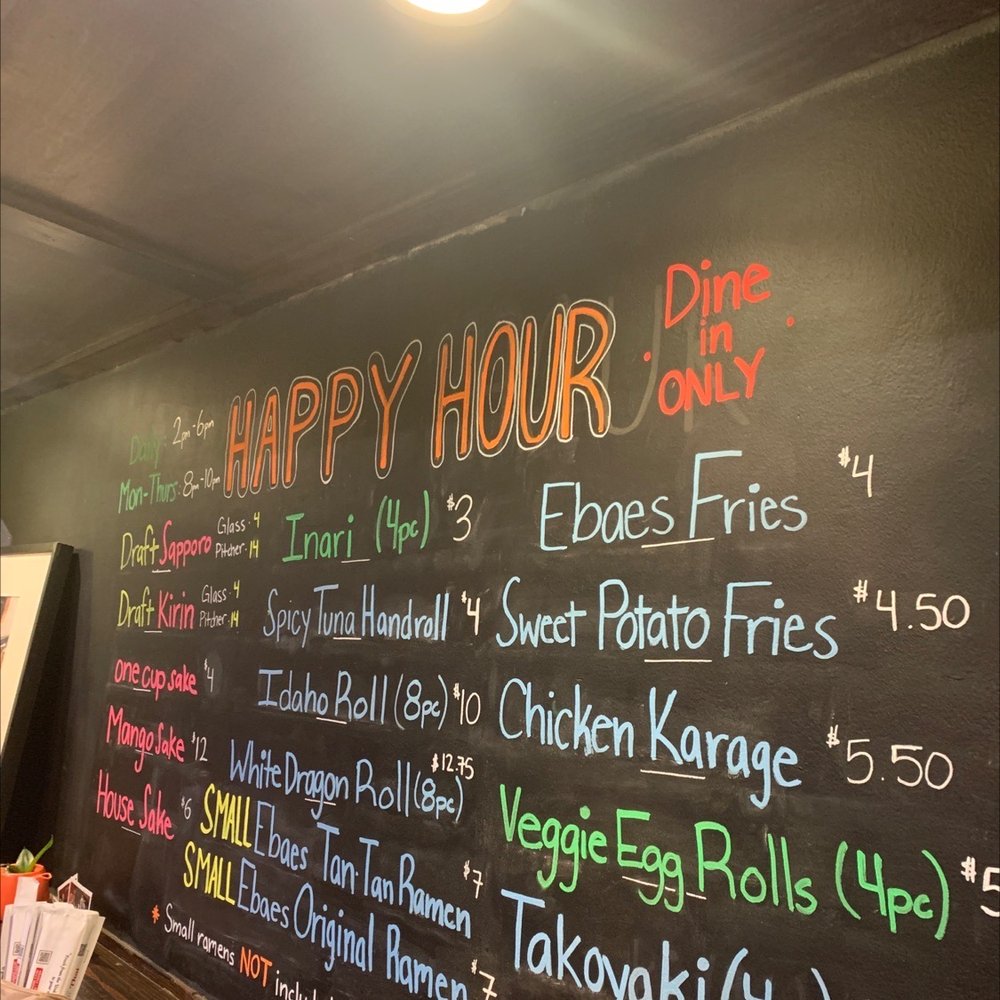 HAPPY HOUR
Dine
in
ONLY
Daily: 2pm-6pm
Mon-Thurs: 8pm-10pm
Draft Sapporo Glass · 4
Pitcher · 14
Draft Kirin Glass · 4
Pitcher · 14
one cup sake $4
Mango Sake $12
House Sake $6
Inari (4pc) $3
Spicy Tuna Handroll $4
Idaho Roll (8pc) $10
White Dragon Roll (8pc) $12.75
SMALL Ebaes Tan Tan Ramen $7
SMALL Ebaes Original Ramen $7
* Small ramens NOT
Ebaes Fries $4
Sweet Potato Fries $4.50
Chicken Karage $5.50
Veggie Egg Rolls (4pc) $5
Takoyaki (4